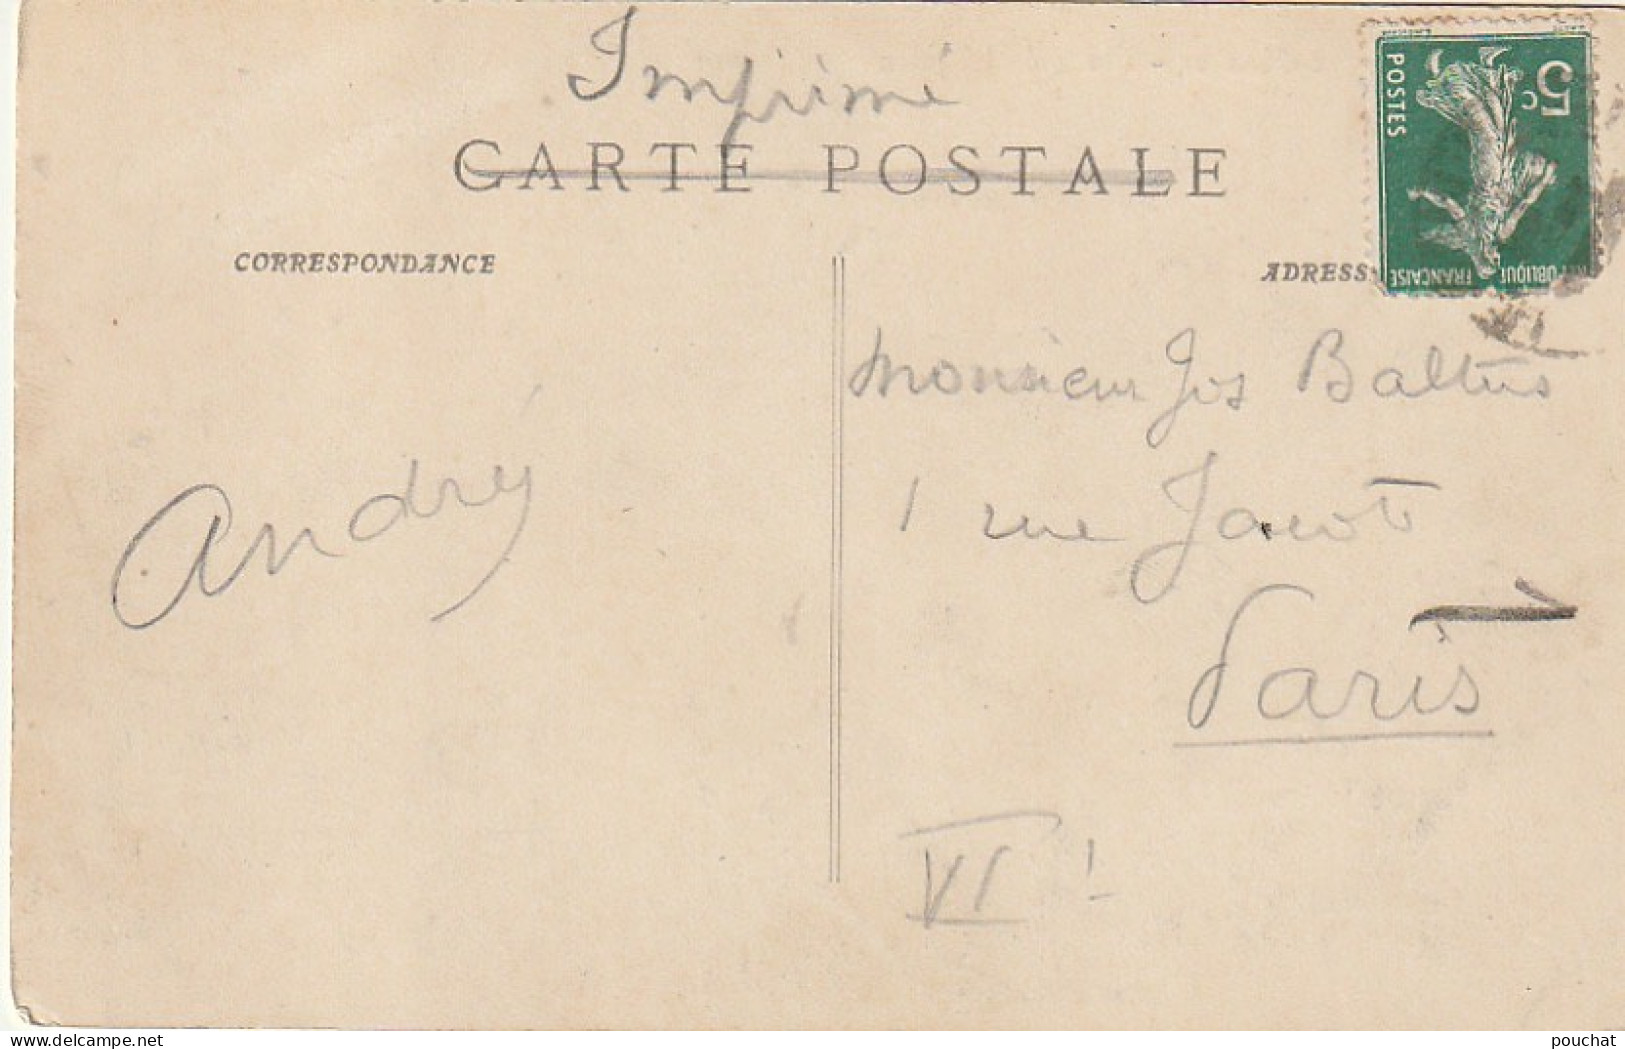 Imprimé
CARTE POSTALE
CORRESPONDANCE
ADRESS
5c
POSTES
RÉPUBLIQUE FRANÇAISE
Monsieur Jos Baltus
1 rue Jacob
Paris
VI
André
delcampe.net
pouchat